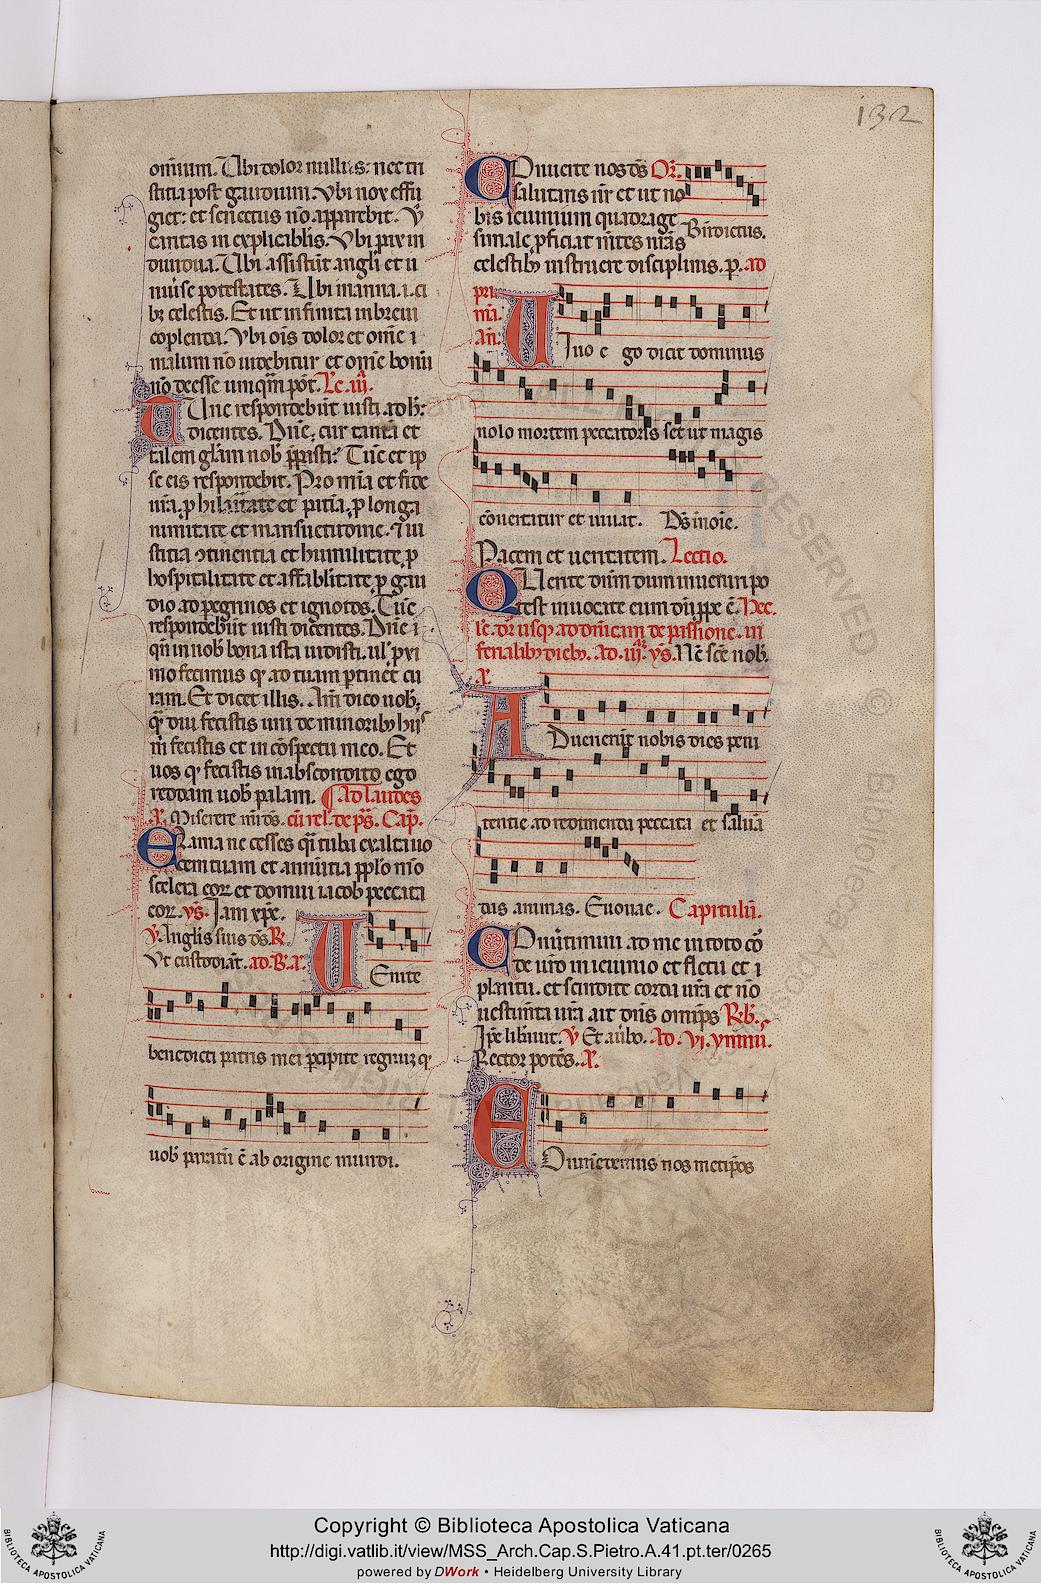 132
omnium. Ubi dolor nullus: nec tri
stitia post gaudium. Ubi nox effu
giet: et senectus nō apparebit. V̄
caritas in explicabilis. Ubi pax in
diuidua. Ubi assistūt angli et u
niūse potestates. Ubi manna .i. ci
bꝰ celestis. Et ut infinita in breui
cōplenda. Ubi oīs dolor et omē i
malum nō uidebitur et omē bonū
nō deesse umqm̄ pōt. Lc. iij.
Tunc respondebūt iusti ad hˢ:
dicentes. Dn̄e, cur tantā et
talem glam̄ nob̄ pp̄rasti? Tūc et ip
se eis respondebit. Pro mīa et fide
ur̄a, p
nimitate et mansuetudine. 7 iu
stitia ꝯtinentia et humilitate, p
hospitalitate et affablitate, p gau
dio ad pegrinos et ignotos. Tūc
respondebūt iusti dicentes. Dn̄e i
qn̄ in nob̄ bona ista uidisti. ul̓ pxi
mo fecimus q̄ ad tuam ptinēt cu
ram. Et dicet illis. Am̄ dico uob̄:
q̄ diu fecistis uni de minoribꝫ hijˢ
m̄ fecistis et in cōspectu meo. Et
uos q̄ fecistis in abscondito ego
reddam uob̄ palam. Ad laudes
A. Miserere mī dˢ. cū rel. de pˢ. Cap.
Clama ne cesses q̄i tuba exalta uo
cem tuam et annūtia pplo mō
scelera eoꝝ et domui iacob peccata
eoꝝ. yˢ. Iam xp̄e.
V̄. Anglis suis dˢ. R̄.
Vt custodiāt. ad .B. A. Uenite
benedicti patris mei pcipite regnum q̄
uob̄ paratū ē ab origine mundi.
Conuerte nos dˢ Or̄.
salutaris nr̄ et ut no
bis ieiunium quadrage Bn̄dictus.
simale pficiat mētes nr̄as
celestibꝫ instrue disciplinis. p. ad
pri
mā.
An̄. Uiuo ego dicit dominus
nolo mortem peccatoris set ut magis
cōuertatur et uiuat. Dˢ in noīe.
Pacem et ueritatem. Lectio.
Querite dn̄m dum inueniri po
test inuocate eum dū ppe ē. Hec
lc. dr̄ usq̄ ad dn̄icam de passione. in
ferialibꝫ diebꝫ. Ad .iij. yˢ. Nc̄ sc̄e nob̄.
A.
Aduenerūt nobis dies peni
tentie ad redimenda peccata et saluā
das animas. Euouae. Capitulū.
Conūtimini ad me in toto cō
de uro in ieiunio et fletu et i
planctu. et scindite corda ur̄a et nō
uestimta ur̄a ait dn̄s omīps R̄b̄.
Ipe libauit. V̄ Et a ūbo. Ad .vi. ymnū.
Rector potēs. A.
Cōmēdemus nos metipos
Copyright © Biblioteca Apostolica Vaticana
http://digi.vatlib.it/view/MSS_Arch.Cap.S.Pietro.A.41.pt.ter/0265
powered by DWork • Heidelberg University Library
BIBLIOTECA APOSTOLICA VATICANA
BIBLIOTECA APOSTOLICA VATICANA